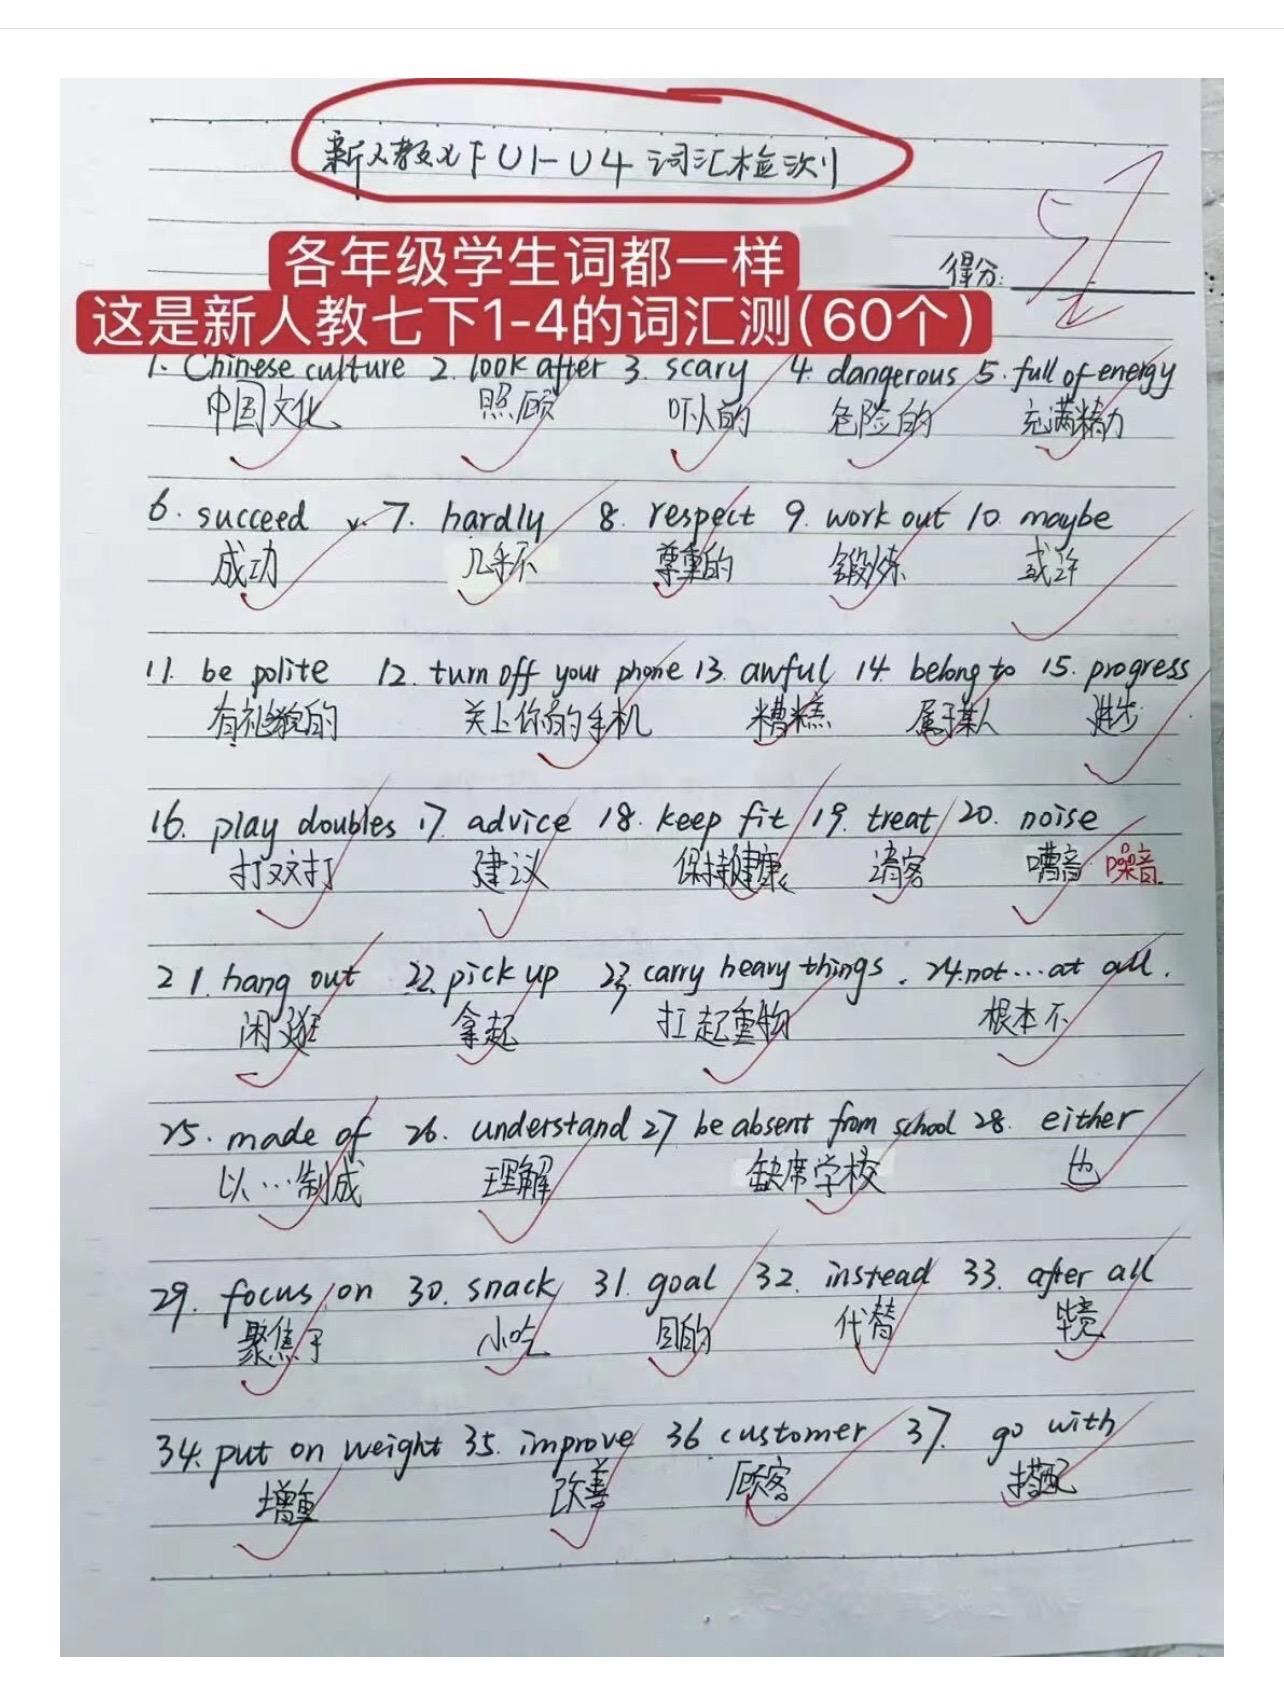 新人教七下U1-U4 词汇检测
各年级学生词都一样
得分:
这是新人教七下1-4的词汇测(60个)
1. Chinese culture 2. look after 3. scary 4. dangerous 5. full of energy
中国文化 照顾 吓人的 危险的 充满精力
6. succeed v. 7. hardly 8. respect 9. work out 10. maybe
成功 几乎不 尊重的 锻炼 或许
11. be polite 12. turn off your phone 13. awful 14. belong to 15. progress
有礼貌的 关上你的手机 糟糕 属于某人 进步
16. play doubles 17. advice 18. keep fit 19. treat 20. noise
打双打 建议 保持健康 请客 嘈音 噪音.
21. hang out 22. pick up 23. carry heavy things. 24. not...at all.
闲逛 拿起 扛起重物 根本不
25. made of 26. understand 27 be absent from school 28. either
以…制成 理解 缺席学校 也
29. focus on 30. snack 31. goal 32. instead 33. after all
聚焦于 小吃 目的 代替 毕竟
34. put on weight 35. improve 36 customer 37. go with
增重 改善 顾客 搭配